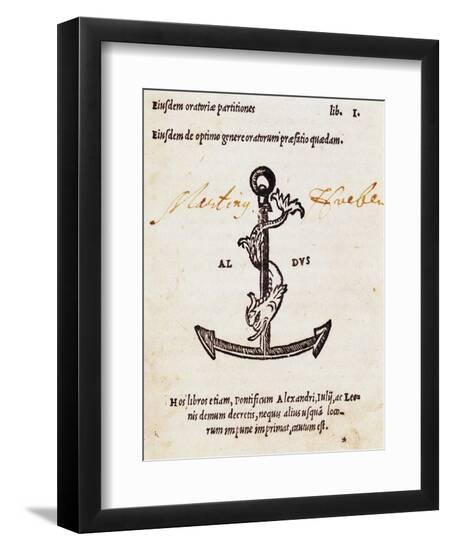 Eiusdem oratoriæ partitiones lib. I.
Eiusdem de optimo genere oratorum præfatio quædam.
Martinz Hueben
AL DVS
Hos libros etiam, Pontificum Alexandri, Iulij, ac Leo-
nis demum decretis, nequis alius usquā loco-
rum impune imprimat, cautum est.